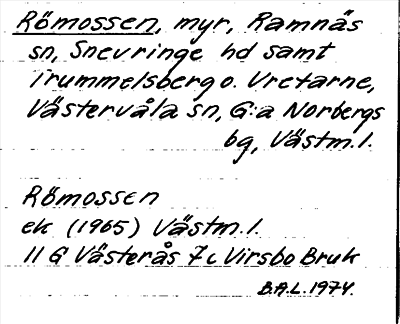 Römossen, myr, Ramnäs
sn, Snevringe hd samt
Trummelsberg o. Vretarne,
Västervåla sn, G:a Norbergs
bg, Västm.l.
Römossen
ek (1965) Västm.l.
11 G Västerås 7c Virsbo Bruk
B.A.L. 1974.